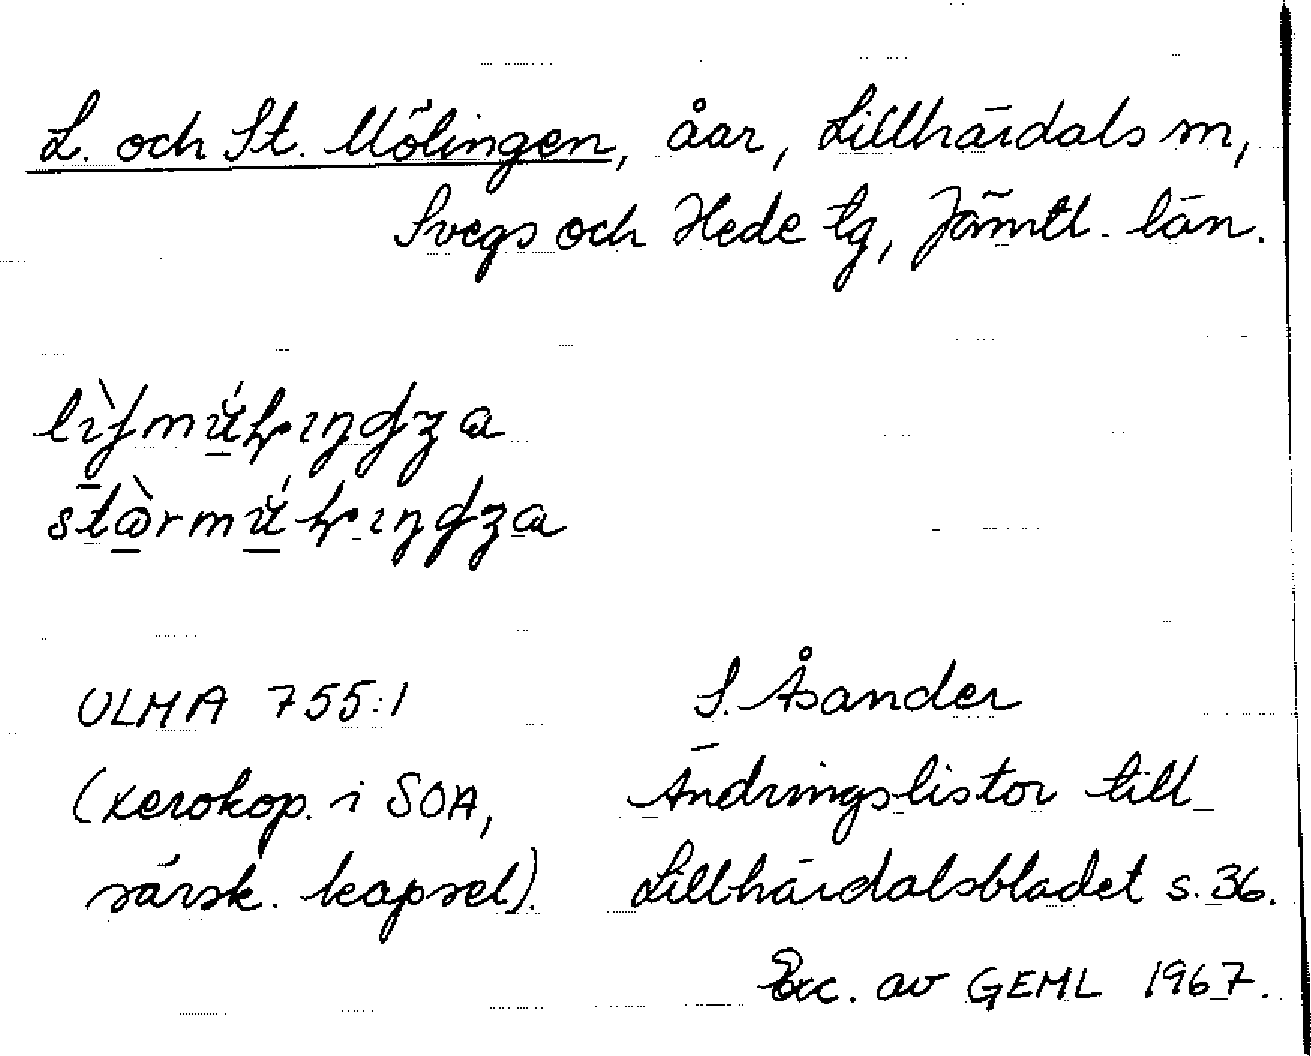 L. och St. Mölingen, åar, Lillhärdals sn,
Svegs och Hede tg, Jämtl. län.
ULMA 755:1
S. Åsander
(xerokop. i SOA,
Ändringslistor till
särsk. kapsel).
Lillhärdalsbladet s. 36.
Exc. av GEML 1967.